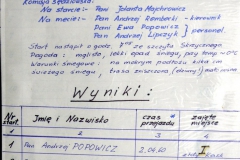 Komisja sędziowska:
Na starcie: - Pani Jolanta Majchrowicz
Na mecie: - Pan Andrzej Rembecki - kierownik
Pani Ewa Popowicz
Pan Andrzej Lipczyk } personel
Start nastąpił o godz. ze szczytu Skrzycznego
Pogoda: - mglisto, lekki opad śniegu, pay temp -
Warunki śniegowe: - na mokrym podłożu kilka cm
świeżego śniegu, trasa zniszczona
Wyniki:
Nr start. Imię i Nazwisko czas przejazdu zajęte miejsce
1 2 3 4
1 Pan Andrzej POPOWICZ 2,04.60 I